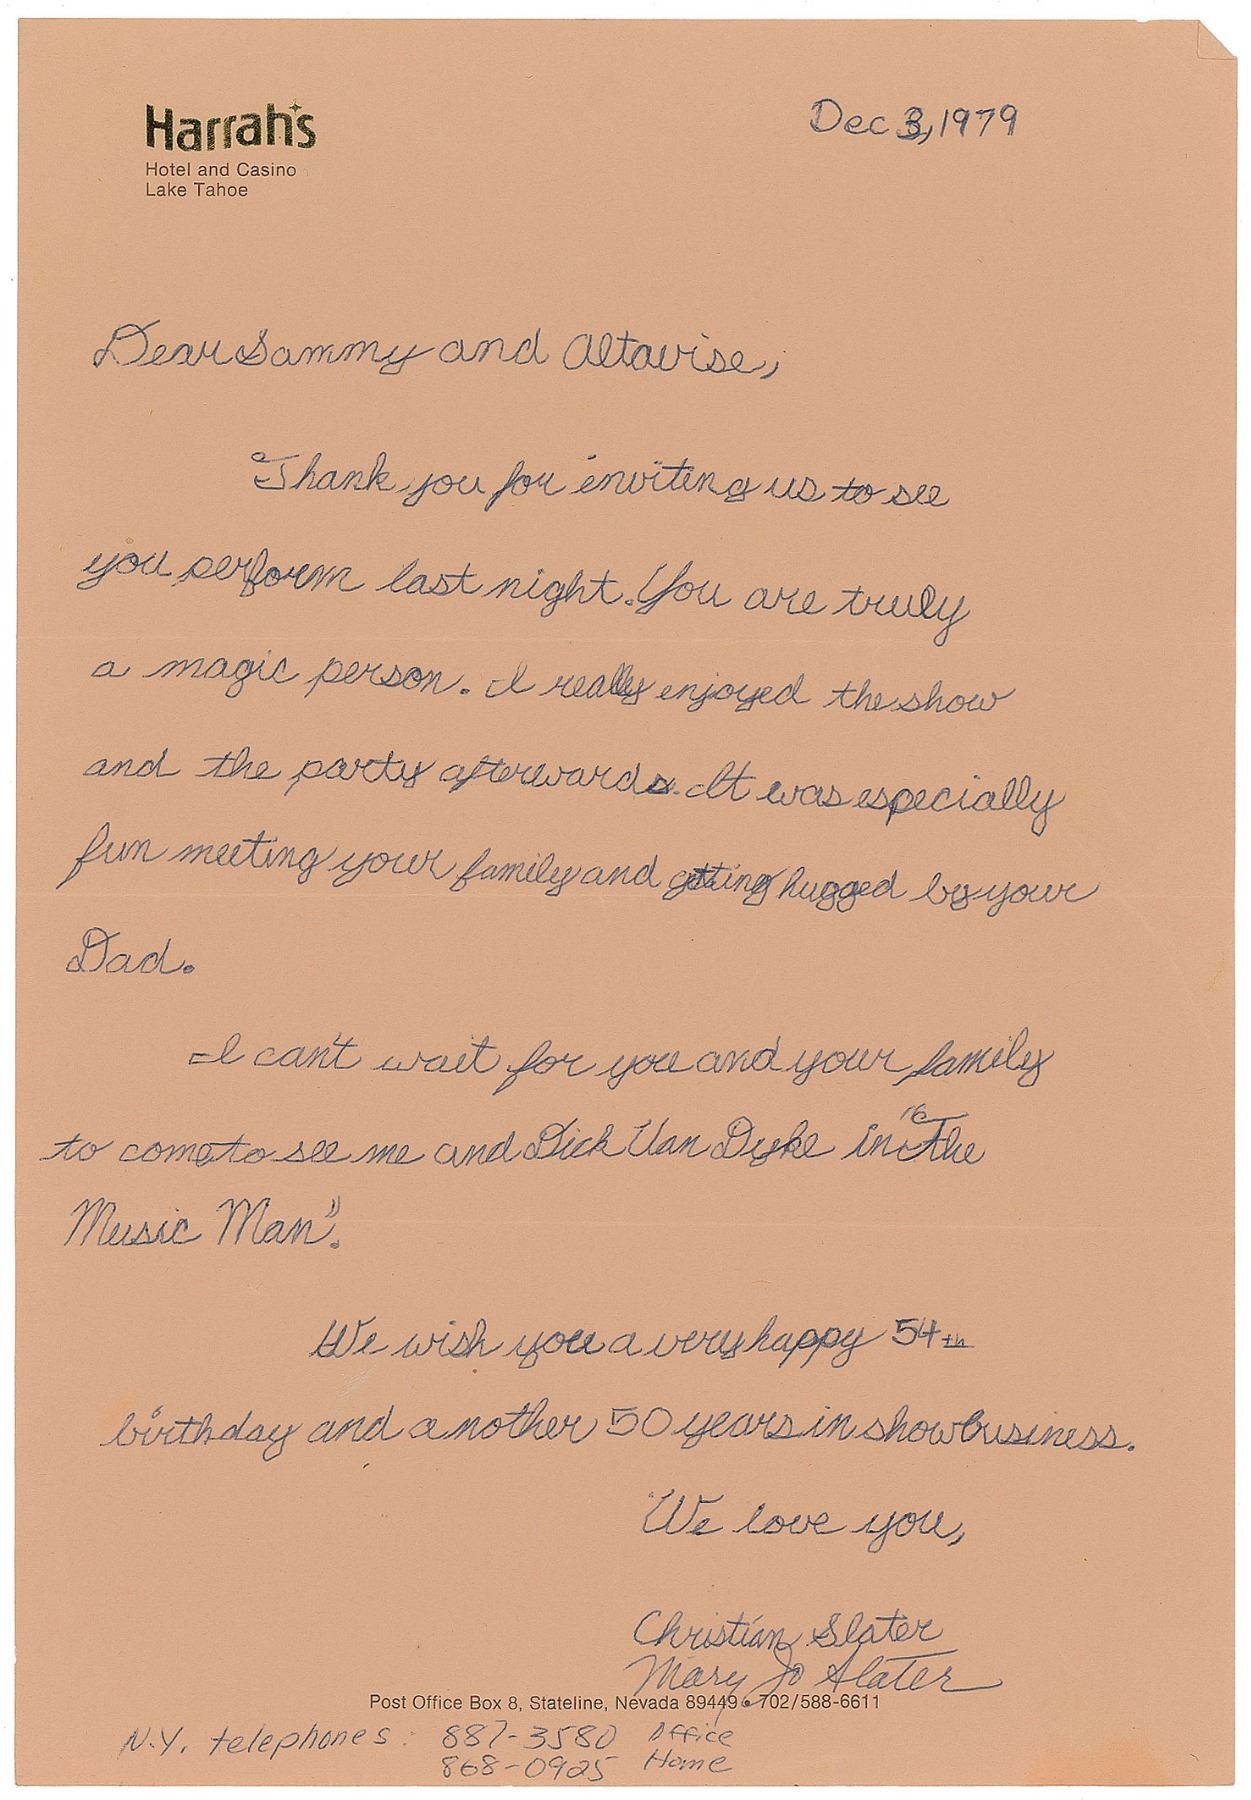 Harrah's
Hotel and Casino
Lake Tahoe
Dec 3, 1979
Dear Sammy and Altavise,
Thank you for inviting us to see
you perform last night. You are truly
a magic person. I really enjoyed the show
and the party afterwards. It was especially
fun meeting your family and getting hugged by your
Dad.
I can't wait for you and your family
to come to see me and Dick Van Dyke in "The
Music Man".
We wish you a very happy 54th
birthday and another 50 years in showbusiness.
We love you,
Christian Slater
Mary Jo Slater
Post Office Box 8, Stateline, Nevada 89449 • 702/588-6611
N.Y. telephones: 887-3580 Office
868-0925 Home